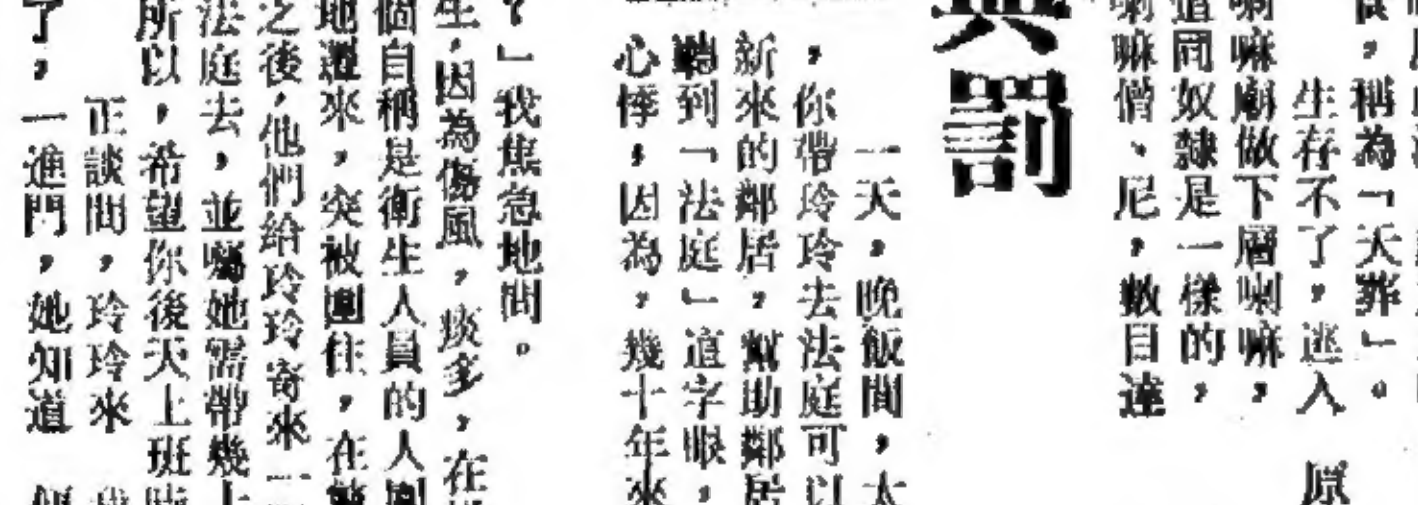 稱為「天葬」。
生存不了，逃入
喇嘛廟做下層喇嘛，
道同奴隸是一樣的，
喇嘛僧、尼，數目達
原
與罰
一天，晚飯間，太
，你帶玲玲去法庭可以
新來的鄰居，幫助鄰居
聽到「法庭」這字眼，
心悸，因為，幾十年來
？」我焦急地問。
生，因為傷風，痰多，在
個自稱是衛生人員的人圍
地遲來，突被圍住，在
之後，他們給玲玲寄來一
法庭去，並囑她需帶幾
所以，希望你後天上班
正談間，玲玲來
了，一進門，她知道